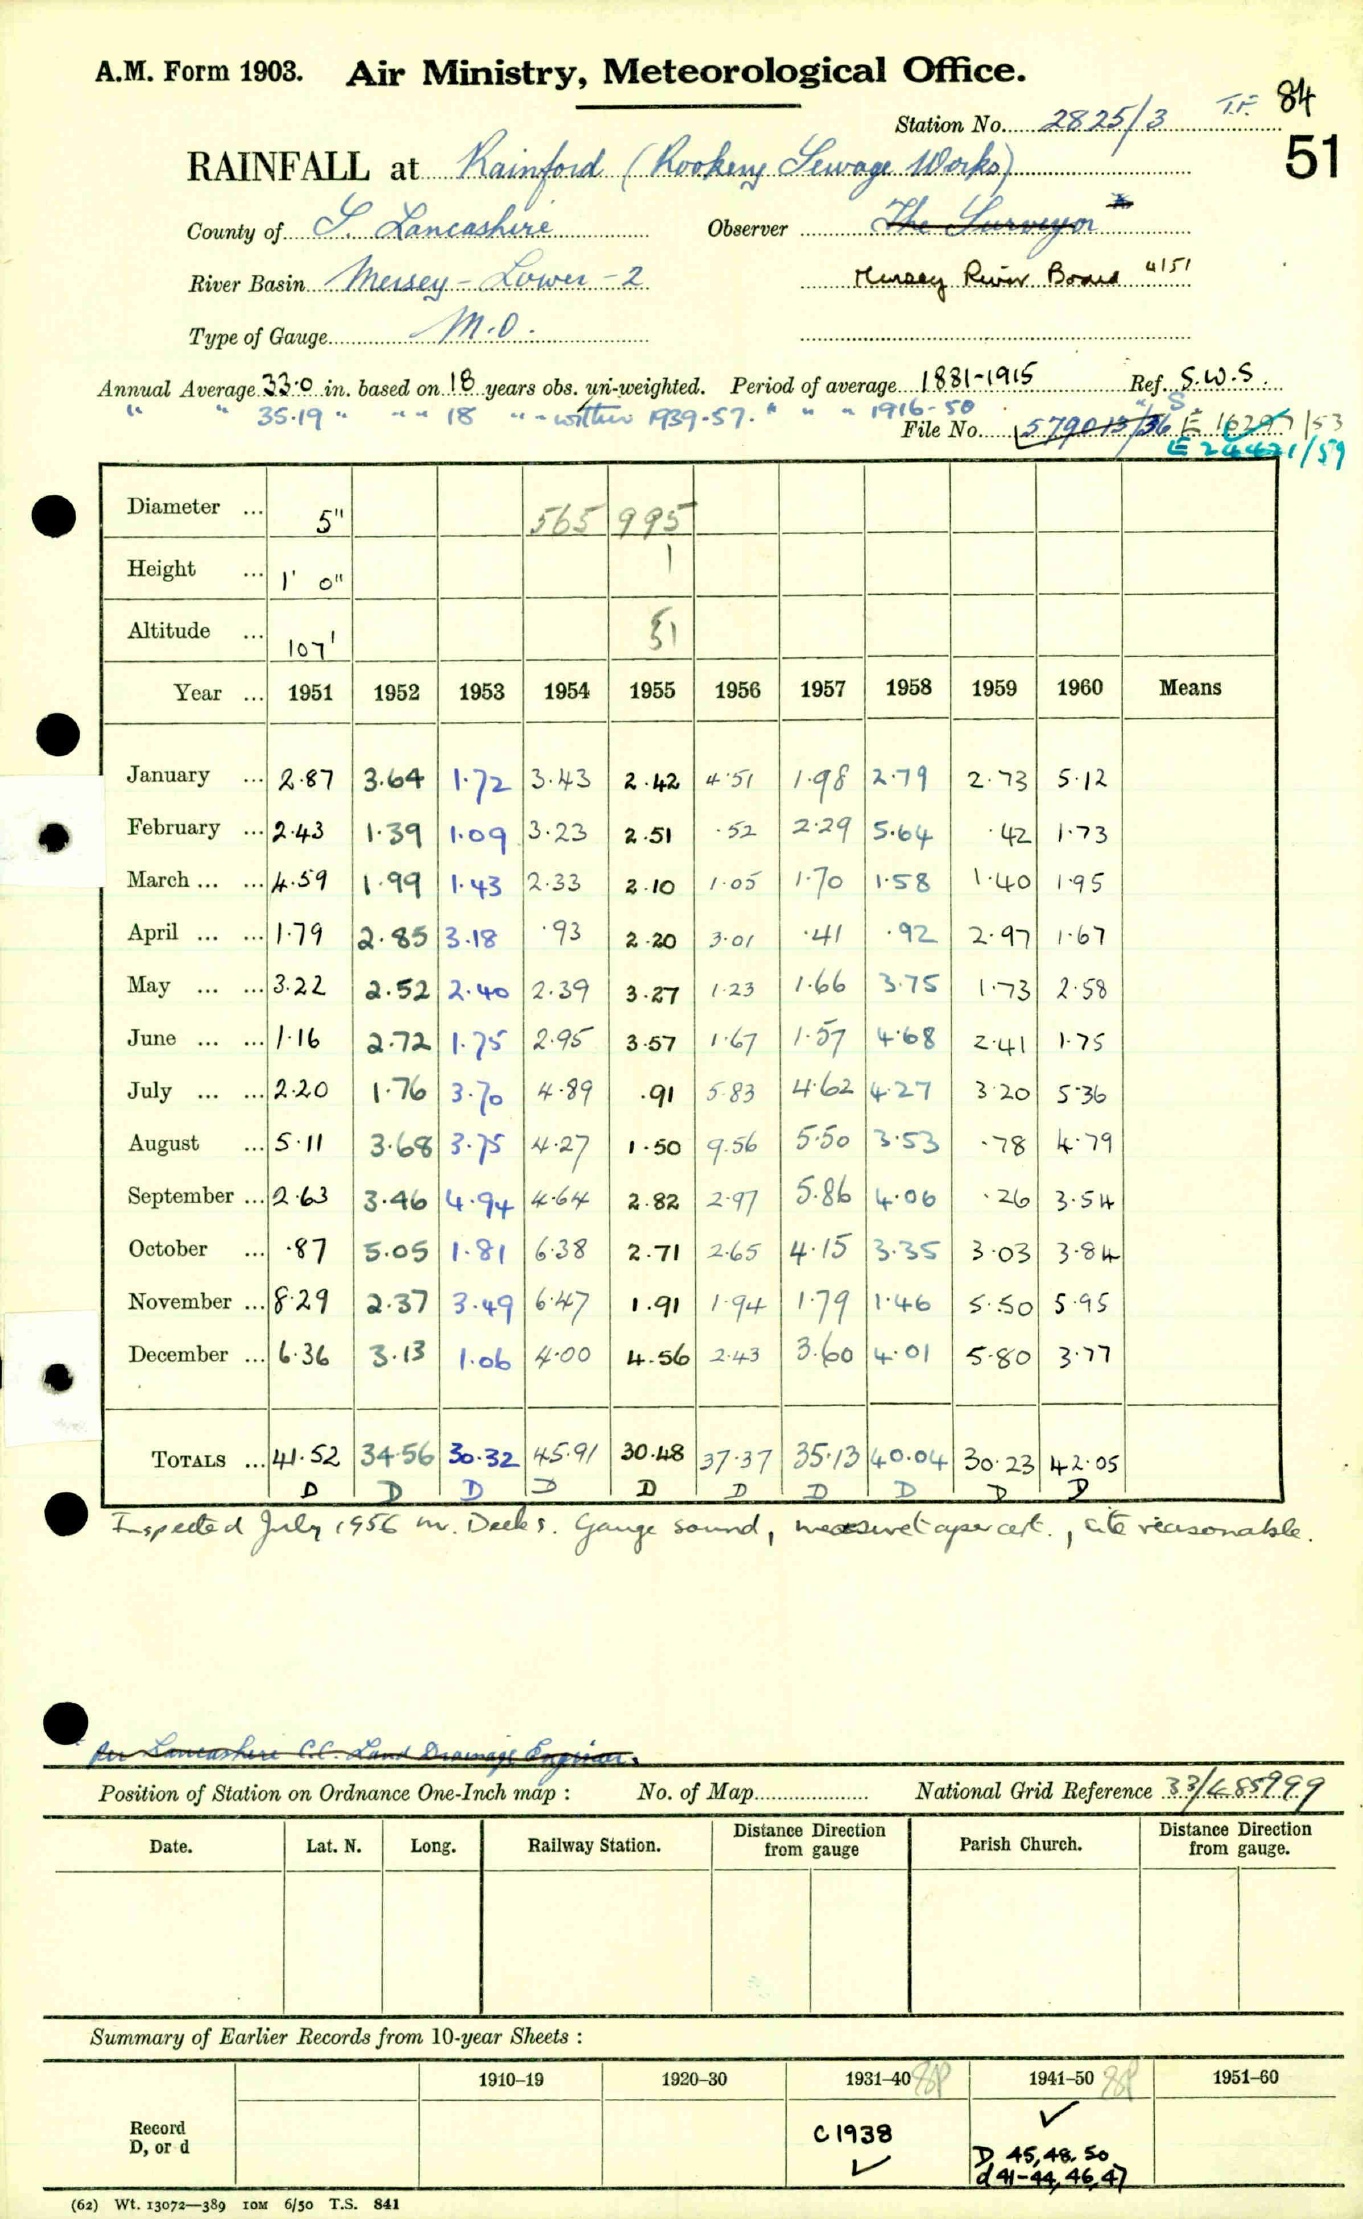 A.M. Form 1903. Air Ministry, Meteorological Office.
Station No. 2825/3 T.F. 84
51
RAINFALL at Rainford (Rookery Sewage Works)
County of S. Lancashire Observer The Surveyor
River Basin Mersey - Lower - 2 Mersey River Board 4/51
Type of Gauge M.O.
Annual Average 33.0 in. based on 18 years obs. un-weighted. Period of average 1881-1915 Ref. S.W.S.
" " 35.19 " " " 18 " " within 1939-57. " " " 1916-50 " S.
File No. 579013/36 E 16297/53
E 24421/59
Diameter ... 5" 565 995
Height ... 1' 0" 1
Altitude ... 107' 51
Year ... 1951 1952 1953 1954 1955 1956 1957 1958 1959 1960 Means
January ... 2.87 3.64 1.72 3.43 2.42 4.51 1.98 2.79 2.73 5.12
February ... 2.43 1.39 1.09 3.23 2.51 .52 2.29 5.64 .42 1.73
March ... ... 4.59 1.99 1.43 2.33 2.10 1.05 1.70 1.58 1.40 1.95
April ... ... 1.79 2.85 3.18 .93 2.20 3.01 .41 .92 2.97 1.67
May ... ... 3.22 2.52 2.40 2.39 3.27 1.23 1.66 3.75 1.73 2.58
June ... ... 1.16 2.72 1.75 2.95 3.57 1.67 1.57 4.68 2.41 1.75
July ... ... 2.20 1.76 3.70 4.89 .91 5.83 4.62 4.27 3.20 5.36
August ... 5.11 3.68 3.75 4.27 1.50 9.56 5.50 3.53 .78 4.79
September ... 2.63 3.46 4.94 4.64 2.82 2.97 5.86 4.06 .26 3.54
October ... .87 5.05 1.81 6.38 2.71 2.65 4.15 3.35 3.03 3.84
November ... 8.29 2.37 3.49 6.47 1.91 1.94 1.79 1.46 5.50 5.95
December ... 6.36 3.13 1.06 4.00 4.56 2.43 3.60 4.01 5.80 3.77
TOTALS ... 41.52 34.56 30.32 45.91 30.48 37.37 35.13 40.04 30.23 42.05
D D D D D D D D D D
Inspected July 1956 Mr. Deeks. Gauge sound, , site reasonable.
Per Lancashire C.C. Land Drainage Engineer.
Position of Station on Ordnance One-Inch map : No. of Map National Grid Reference 33/485999
Date. Lat. N. Long. Railway Station. Distance Direction from gauge Parish Church. Distance Direction from gauge.
Summary of Earlier Records from 10-year Sheets :
1910-19 1920-30 1931-40 1941-50 1951-60
Record D, or d C1938 ✓ ✓
D 45, 48, 50
d 41-44, 46, 47
(62) Wt. 13072—389 10M 6/50 T.S. 841